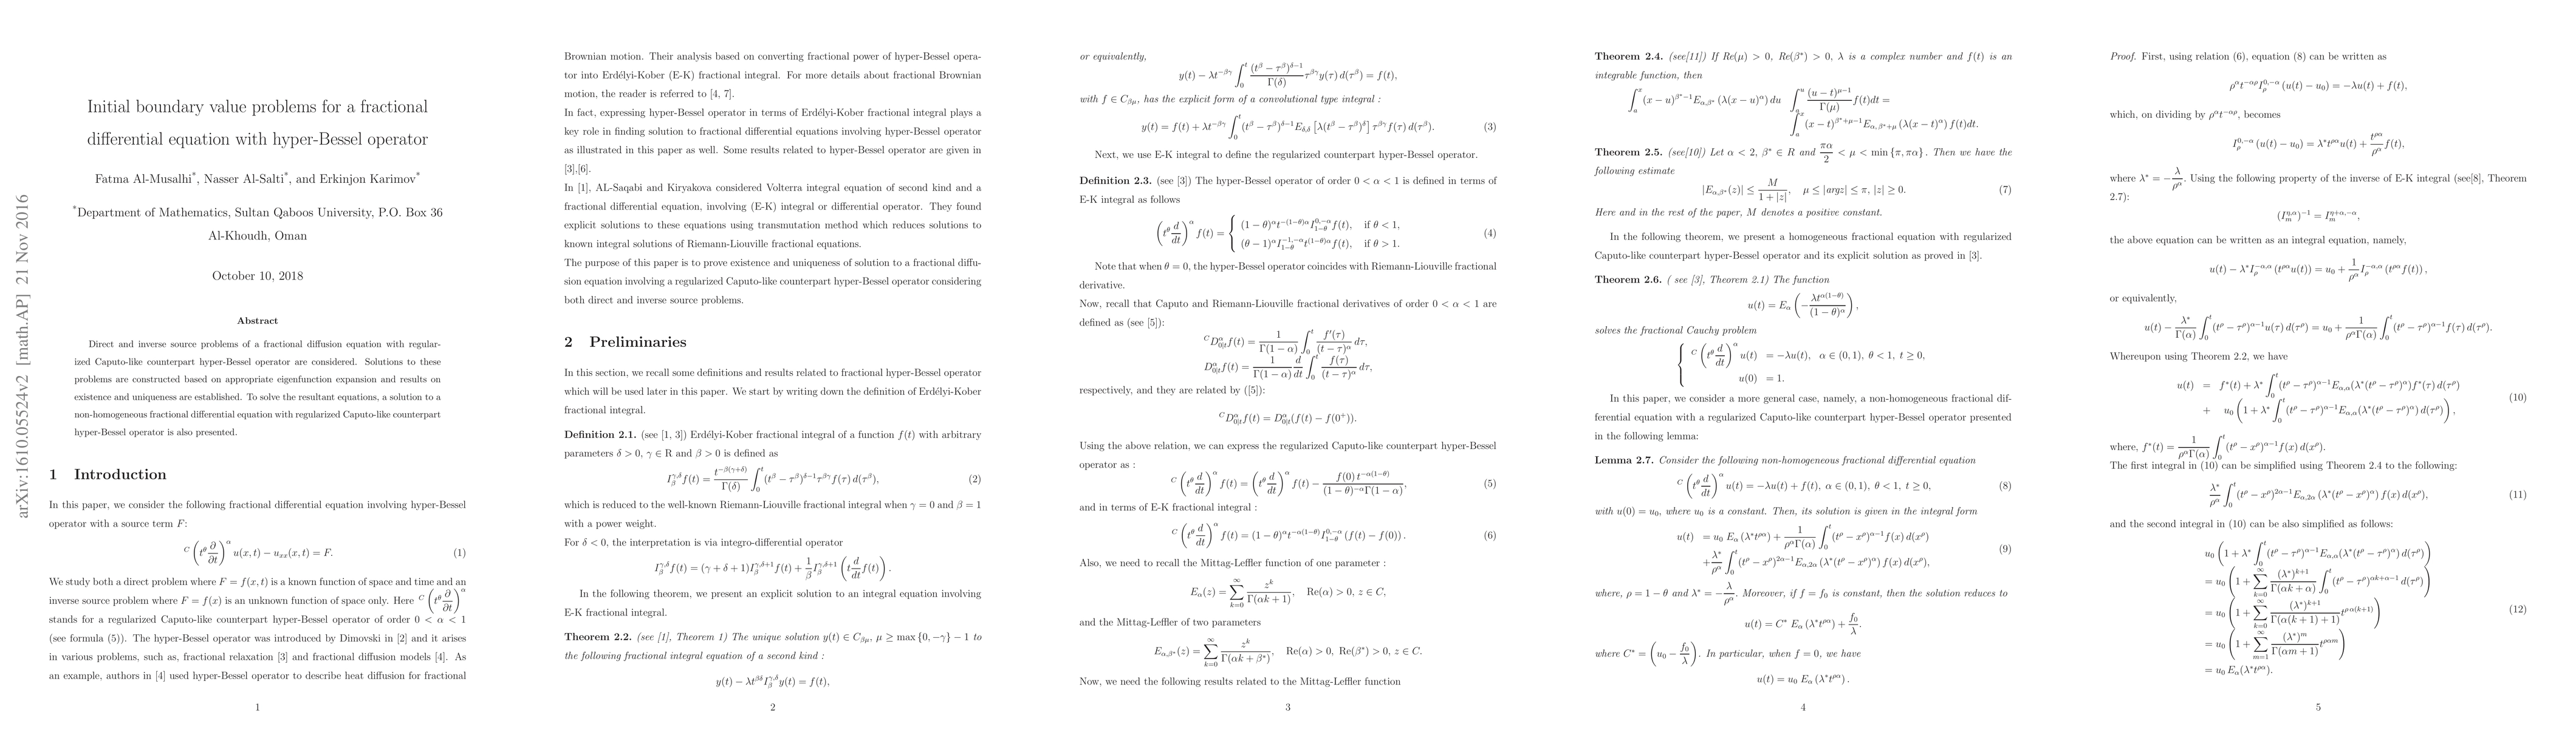 arXiv:1610.05524v2 [math.AP] 21 Nov 2016
Initial boundary value problems for a fractional
differential equation with hyper-Bessel operator
Fatma Al-Musalhi*, Nasser Al-Salti*, and Erkinjon Karimov*
*Department of Mathematics, Sultan Qaboos University, P.O. Box 36
Al-Khoudh, Oman
October 10, 2018
Abstract
Direct and inverse source problems of a fractional diffusion equation with regular-
ized Caputo-like counterpart hyper-Bessel operator are considered. Solutions to these
problems are constructed based on appropriate eigenfunction expansion and results on
existence and uniqueness are established. To solve the resultant equations, a solution to a
non-homogeneous fractional differential equation with regularized Caputo-like counterpart
hyper-Bessel operator is also presented.
1 Introduction
In this paper, we consider the following fractional differential equation involving hyper-Bessel
operator with a source term F:
^C (t^θ ∂/∂t)^α u(x, t) − u_{xx}(x, t) = F. (1)
We study both a direct problem where F = f(x, t) is a known function of space and time and an
inverse source problem where F = f(x) is an unknown function of space only. Here ^C (t^θ ∂/∂t)^α
stands for a regularized Caputo-like counterpart hyper-Bessel operator of order 0 < α < 1
(see formula (5)). The hyper-Bessel operator was introduced by Dimovski in [2] and it arises
in various problems, such as, fractional relaxation [3] and fractional diffusion models [4]. As
an example, authors in [4] used hyper-Bessel operator to describe heat diffusion for fractional
1
Brownian motion. Their analysis based on converting fractional power of hyper-Bessel opera-
tor into Erdélyi-Kober (E-K) fractional integral. For more details about fractional Brownian
motion, the reader is referred to [4, 7].
In fact, expressing hyper-Bessel operator in terms of Erdélyi-Kober fractional integral plays a
key role in finding solution to fractional differential equations involving hyper-Bessel operator
as illustrated in this paper as well. Some results related to hyper-Bessel operator are given in
[3],[6].
In [1], AL-Saqabi and Kiryakova considered Volterra integral equation of second kind and a
fractional differential equation, involving (E-K) integral or differential operator. They found
explicit solutions to these equations using transmutation method which reduces solutions to
known integral solutions of Riemann-Liouville fractional equations.
The purpose of this paper is to prove existence and uniqueness of solution to a fractional diffu-
sion equation involving a regularized Caputo-like counterpart hyper-Bessel operator considering
both direct and inverse source problems.
2 Preliminaries
In this section, we recall some definitions and results related to fractional hyper-Bessel operator
which will be used later in this paper. We start by writing down the definition of Erdélyi-Kober
fractional integral.
Definition 2.1. (see [1, 3]) Erdélyi-Kober fractional integral of a function f(t) with arbitrary
parameters δ > 0, γ ∈ R and β > 0 is defined as
I_β^{γ,δ} f(t) = t^{−β(γ+δ)}/Γ(δ) ∫_0^t (t^β − τ^β)^{δ−1} τ^{βγ} f(τ) d(τ^β), (2)
which is reduced to the well-known Riemann-Liouville fractional integral when γ = 0 and β = 1
with a power weight.
For δ < 0, the interpretation is via integro-differential operator
I_β^{γ,δ} f(t) = (γ + δ + 1)I_β^{γ,δ+1} f(t) + 1/β I_β^{γ,δ+1} (t d/dt f(t)).
In the following theorem, we present an explicit solution to an integral equation involving
E-K fractional integral.
Theorem 2.2. (see [1], Theorem 1) The unique solution y(t) ∈ C_{βμ}, μ ≥ max{0, −γ} − 1 to
the following fractional integral equation of a second kind :
y(t) − λt^{βδ} I_β^{γ,δ} y(t) = f(t),
2
or equivalently,
y(t) − λt^{−βγ} ∫_0^t (t^β − τ^β)^{δ−1}/Γ(δ) τ^{βγ} y(τ) d(τ^β) = f(t),
with f ∈ C_{βμ}, has the explicit form of a convolutional type integral :
y(t) = f(t) + λt^{−βγ} ∫_0^t (t^β − τ^β)^{δ−1} E_{δ,δ} [λ(t^β − τ^β)^δ] τ^{βγ} f(τ) d(τ^β). (3)
Next, we use E-K integral to define the regularized counterpart hyper-Bessel operator.
Definition 2.3. (see [3]) The hyper-Bessel operator of order 0 < α < 1 is defined in terms of
E-K integral as follows
(t^θ d/dt)^α f(t) = { (1 − θ)^α t^{−(1−θ)α} I_{1−θ}^{0,−α} f(t), if θ < 1,
(θ − 1)^α I_{1−θ}^{−1,−α} t^{(1−θ)α} f(t), if θ > 1. (4)
Note that when θ = 0, the hyper-Bessel operator coincides with Riemann-Liouville fractional
derivative.
Now, recall that Caputo and Riemann-Liouville fractional derivatives of order 0 < α < 1 are
defined as (see [5]):
^C D_{0|t}^α f(t) = 1/Γ(1 − α) ∫_0^t f′(τ)/(t − τ)^α dτ,
D_{0|t}^α f(t) = 1/Γ(1 − α) d/dt ∫_0^t f(τ)/(t − τ)^α dτ,
respectively, and they are related by ([5]):
^C D_{0|t}^α f(t) = D_{0|t}^α (f(t) − f(0^+)).
Using the above relation, we can express the regularized Caputo-like counterpart hyper-Bessel
operator as :
^C (t^θ d/dt)^α f(t) = (t^θ d/dt)^α f(t) − f(0) t^{−α(1−θ)}/((1 − θ)^{−α} Γ(1 − α)), (5)
and in terms of E-K fractional integral :
^C (t^θ d/dt)^α f(t) = (1 − θ)^α t^{−α(1−θ)} I_{1−θ}^{0,−α} (f(t) − f(0)). (6)
Also, we need to recall the Mittag-Leffler function of one parameter :
E_α(z) = ∑_{k=0}^∞ z^k/Γ(αk + 1), Re(α) > 0, z ∈ C,
and the Mittag-Leffler of two parameters
E_{α,β*}(z) = ∑_{k=0}^∞ z^k/Γ(αk + β*), Re(α) > 0, Re(β*) > 0, z ∈ C.
Now, we need the following results related to the Mittag-Leffler function
3
Theorem 2.4. (see[11]) If Re(μ) > 0, Re(β*) > 0, λ is a complex number and f(t) is an
integrable function, then
∫_a^x (x − u)^{β*−1} E_{α,β*} (λ(x − u)^α) du ∫_a^u (u − t)^{μ−1}/Γ(μ) f(t)dt =
∫_a^x (x − t)^{β*+μ−1} E_{α,β*+μ} (λ(x − t)^α) f(t)dt.
Theorem 2.5. (see[10]) Let α < 2, β* ∈ R and πα/2 < μ < min{π, πα}. Then we have the
following estimate
|E_{α,β*}(z)| ≤ M/(1 + |z|), μ ≤ |argz| ≤ π, |z| ≥ 0. (7)
Here and in the rest of the paper, M denotes a positive constant.
In the following theorem, we present a homogeneous fractional equation with regularized
Caputo-like counterpart hyper-Bessel operator and its explicit solution as proved in [3].
Theorem 2.6. ( see [3], Theorem 2.1) The function
u(t) = E_α (−λt^{α(1−θ)}/(1 − θ)^α),
solves the fractional Cauchy problem
{ ^C (t^θ d/dt)^α u(t) = −λu(t), α ∈ (0, 1), θ < 1, t ≥ 0,
u(0) = 1.
In this paper, we consider a more general case, namely, a non-homogeneous fractional dif-
ferential equation with a regularized Caputo-like counterpart hyper-Bessel operator presented
in the following lemma:
Lemma 2.7. Consider the following non-homogeneous fractional differential equation
^C (t^θ d/dt)^α u(t) = −λu(t) + f(t), α ∈ (0, 1), θ < 1, t ≥ 0, (8)
with u(0) = u_0, where u_0 is a constant. Then, its solution is given in the integral form
u(t) = u_0 E_α (λ*t^{ρα}) + 1/(ρ^α Γ(α)) ∫_0^t (t^ρ − x^ρ)^{α−1} f(x) d(x^ρ)
+ λ*/ρ^α ∫_0^t (t^ρ − x^ρ)^{2α−1} E_{α,2α} (λ*(t^ρ − x^ρ)^α) f(x) d(x^ρ), (9)
where, ρ = 1 − θ and λ* = −λ/ρ^α. Moreover, if f = f_0 is constant, then the solution reduces to
u(t) = C* E_α (λ*t^{ρα}) + f_0/λ.
where C* = (u_0 − f_0/λ). In particular, when f = 0, we have
u(t) = u_0 E_α (λ*t^{ρα}).
4
Proof. First, using relation (6), equation (8) can be written as
ρ^α t^{−αρ} I_ρ^{0,−α} (u(t) − u_0) = −λu(t) + f(t),
which, on dividing by ρ^α t^{−αρ}, becomes
I_ρ^{0,−α} (u(t) − u_0) = λ*t^{ρα} u(t) + t^{ρα}/ρ^α f(t),
where λ* = −λ/ρ^α. Using the following property of the inverse of E-K integral (see[8], Theorem
2.7):
(I_m^{η,α})^{−1} = I_m^{η+α,−α},
the above equation can be written as an integral equation, namely,
u(t) − λ*I_ρ^{−α,α} (t^{ρα} u(t)) = u_0 + 1/ρ^α I_ρ^{−α,α} (t^{ρα} f(t)),
or equivalently,
u(t) − λ*/Γ(α) ∫_0^t (t^ρ − τ^ρ)^{α−1} u(τ) d(τ^ρ) = u_0 + 1/(ρ^α Γ(α)) ∫_0^t (t^ρ − τ^ρ)^{α−1} f(τ) d(τ^ρ).
Whereupon using Theorem 2.2, we have
u(t) = f*(t) + λ* ∫_0^t (t^ρ − τ^ρ)^{α−1} E_{α,α}(λ*(t^ρ − τ^ρ)^α) f*(τ) d(τ^ρ)
+ u_0 (1 + λ* ∫_0^t (t^ρ − τ^ρ)^{α−1} E_{α,α}(λ*(t^ρ − τ^ρ)^α) d(τ^ρ)), (10)
where, f*(t) = 1/(ρ^α Γ(α)) ∫_0^t (t^ρ − x^ρ)^{α−1} f(x) d(x^ρ).
The first integral in (10) can be simplified using Theorem 2.4 to the following:
λ*/ρ^α ∫_0^t (t^ρ − x^ρ)^{2α−1} E_{α,2α} (λ*(t^ρ − x^ρ)^α) f(x) d(x^ρ), (11)
and the second integral in (10) can be also simplified as follows:
u_0 (1 + λ* ∫_0^t (t^ρ − τ^ρ)^{α−1} E_{α,α}(λ*(t^ρ − τ^ρ)^α) d(τ^ρ))
= u_0 (1 + ∑_{k=0}^∞ (λ*)^{k+1}/Γ(αk + α) ∫_0^t (t^ρ − τ^ρ)^{αk+α−1} d(τ^ρ))
= u_0 (1 + ∑_{k=0}^∞ (λ*)^{k+1}/Γ(α(k + 1) + 1) t^{ρα(k+1)}) (12)
= u_0 (1 + ∑_{m=1}^∞ (λ*)^m/Γ(αm + 1) t^{ραm})
= u_0 E_α(λ*t^{ρα}).
5